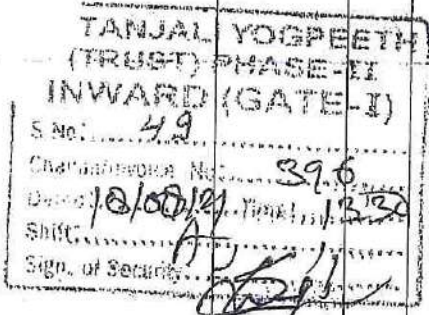 TANJALI YOGPEETH
(TRUST) PHASE-II
INWARD (GATE-I)
S.No: 49
Challan/Invoice No: 396
Dated Time: 1330
Shift: A
Sign. of Security